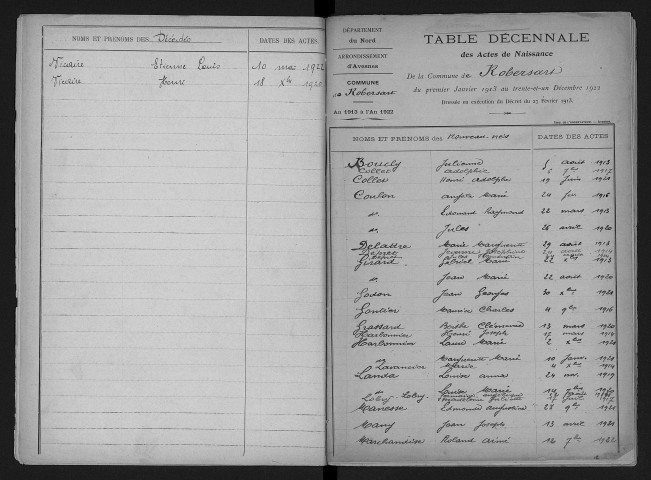 NOMS ET PRÉNOMS DES Décédés DATES DES ACTES
Vicaire Etienne Louis 10 mai 1922
Vicaire 18 Xbre
DÉPARTEMENT
du Nord
ARRONDISSEMENT
d'Avesnes
COMMUNE
de Robersart
An 1913 à l'An 1922
TABLE DÉCENNALE
des Actes de Naissance
De la Commune de Robersart
du premier Janvier 1913 au trente-et-un Décembre 1922
Dressée en exécution du Décret du 23 Février 1913
NOMS ET PRÉNOMS DES Nouveau-nés DATES DES ACTES
Bouchy Julienne 5 août 1913
Collet Adolphe 1917
Collet Henri Adolphe 19 juin 1921
Coulon Marie 24 1916
do Edouard Raymond 22 mars 1913
do Jules 26 avril 1920
Delattre Marie Marguerite 29 août 1913
Girard Gabriel Marie 22 Xbre 1913
do Jean Marie 22 août 1920
Godon Jean Georges 30 Xbre 1921
Gontier Maurice Charles 4 9bre 1916
Grassard Berthe Clémence 13 mars 1920
Harbonnier Henri Joseph 17 mars 1914
Harbonnier Marie 2 Xbre 1921
do Marguerite Marie 10 janv. 1921
4 Xbre 1914
Landa Louise Anna 24 nov. 1919
do Louise Marie 14 1920
Manesse Edmond Augustin 28 9bre 1921
Many Jean Joseph 13 avril 1921
Marchandise Roland Aimé 12 7bre 1922